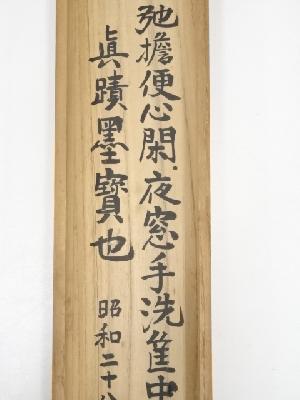 弛擔便心閑夜窓手洗隹中
眞蹟墨寶也 昭和二十八